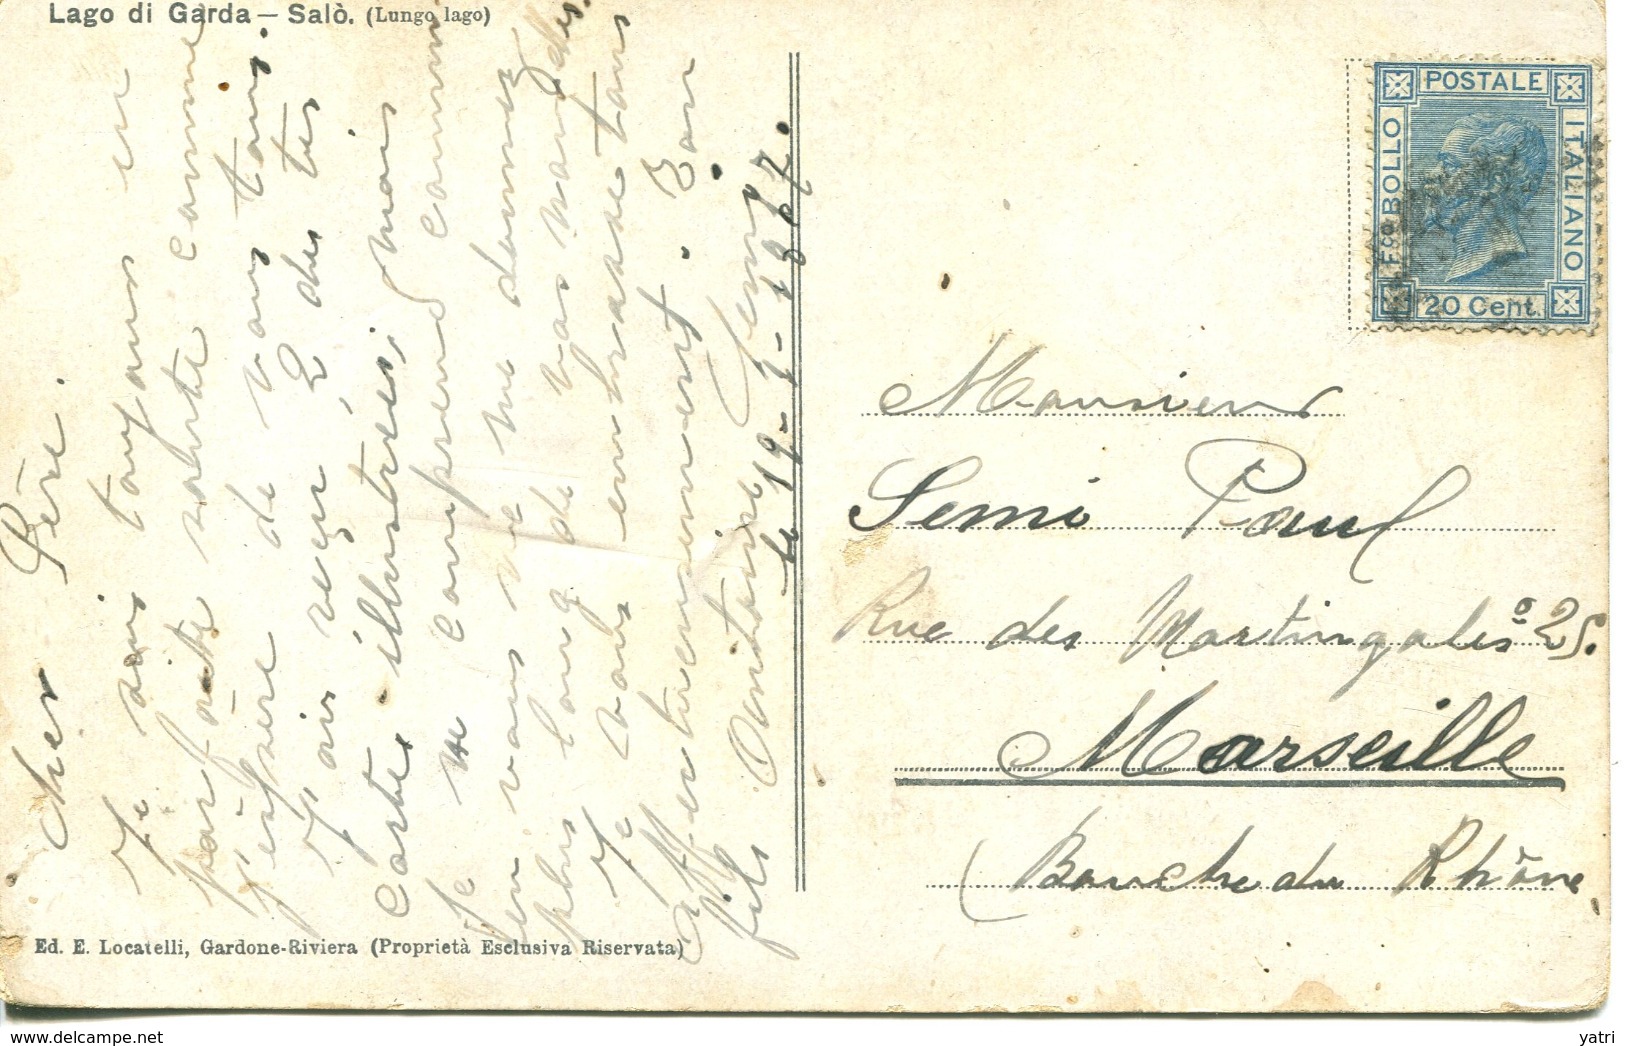 Lago di Garda — Salò. (Lungo lago)
Cher Père.
Je suis toujours en
parfaite santé comme
j'espère de vous tous.
J'ai reçu 2 de tes
carte illustrées, mais
Je ne comprend comm
en vous ne me donnez
plus long de vos nouvelles.
Je vous embrasse tous
affectueusement. Ton
fils Semi
le 19-7-1867.
Ed. E. Locatelli, Gardone-Riviera (Proprietà Esclusiva Riservata)
POSTALE
Fco BOLLO
ITALIANO
20 Cent.
Monsieur
Semi Paul
Rue des Martingales nº 25.
Marseille
(Bouche du Rhône
delcampe.net
yatri